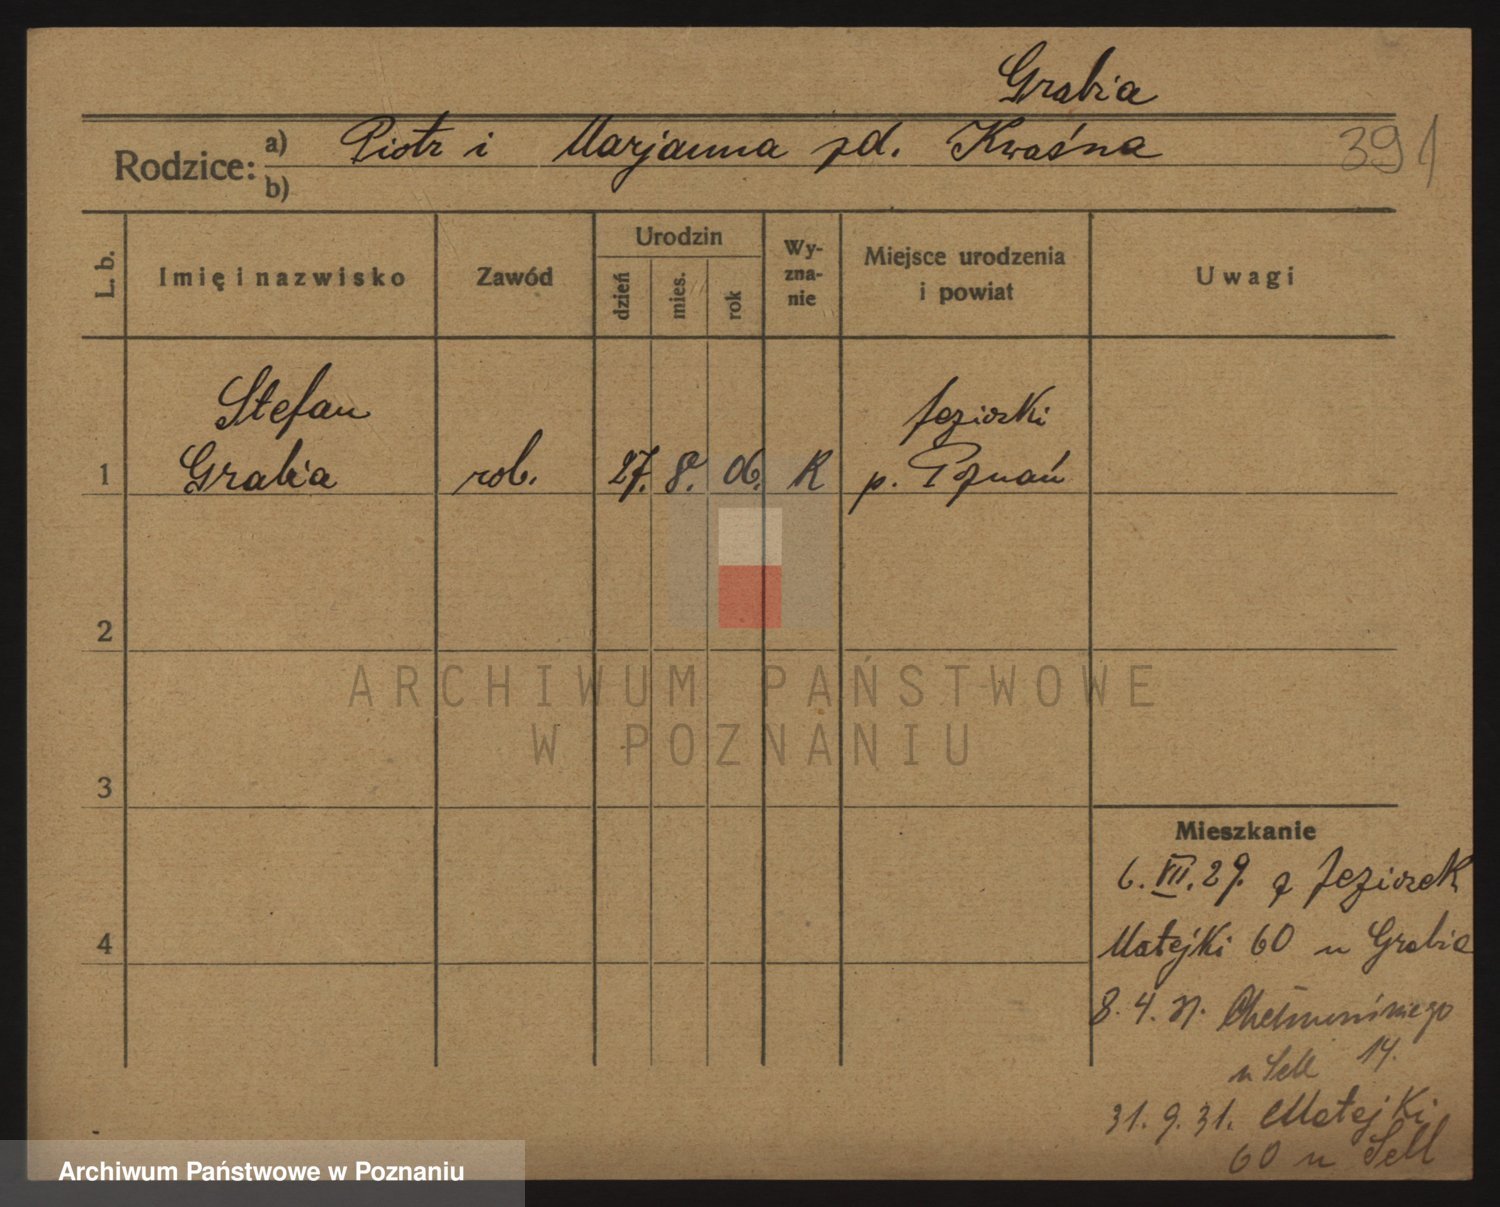 Grabia
Rodzice: a) Piotr i Marjanna zd. Kwaśna
b)
391
L. b.
Imię i nazwisko
Zawód
Urodzin
dzień
mies.
rok
Wy-
zna-
nie
Miejsce urodzenia
i powiat
Uwagi
1
Stefan
Grabia
rob.
27. 8. 06.
K
Jeziorki
p. Poznań
2
3
4
ARCHIWUM PAŃSTWOWE
W POZNANIU
Mieszkanie
6. VII. 29. z Jeziorek
Matejki 60 u Grabia
8. 4. 31.
u Sell 14.
31. 9. 31. Matejki
60 u Sell
Archiwum Państwowe w Poznaniu